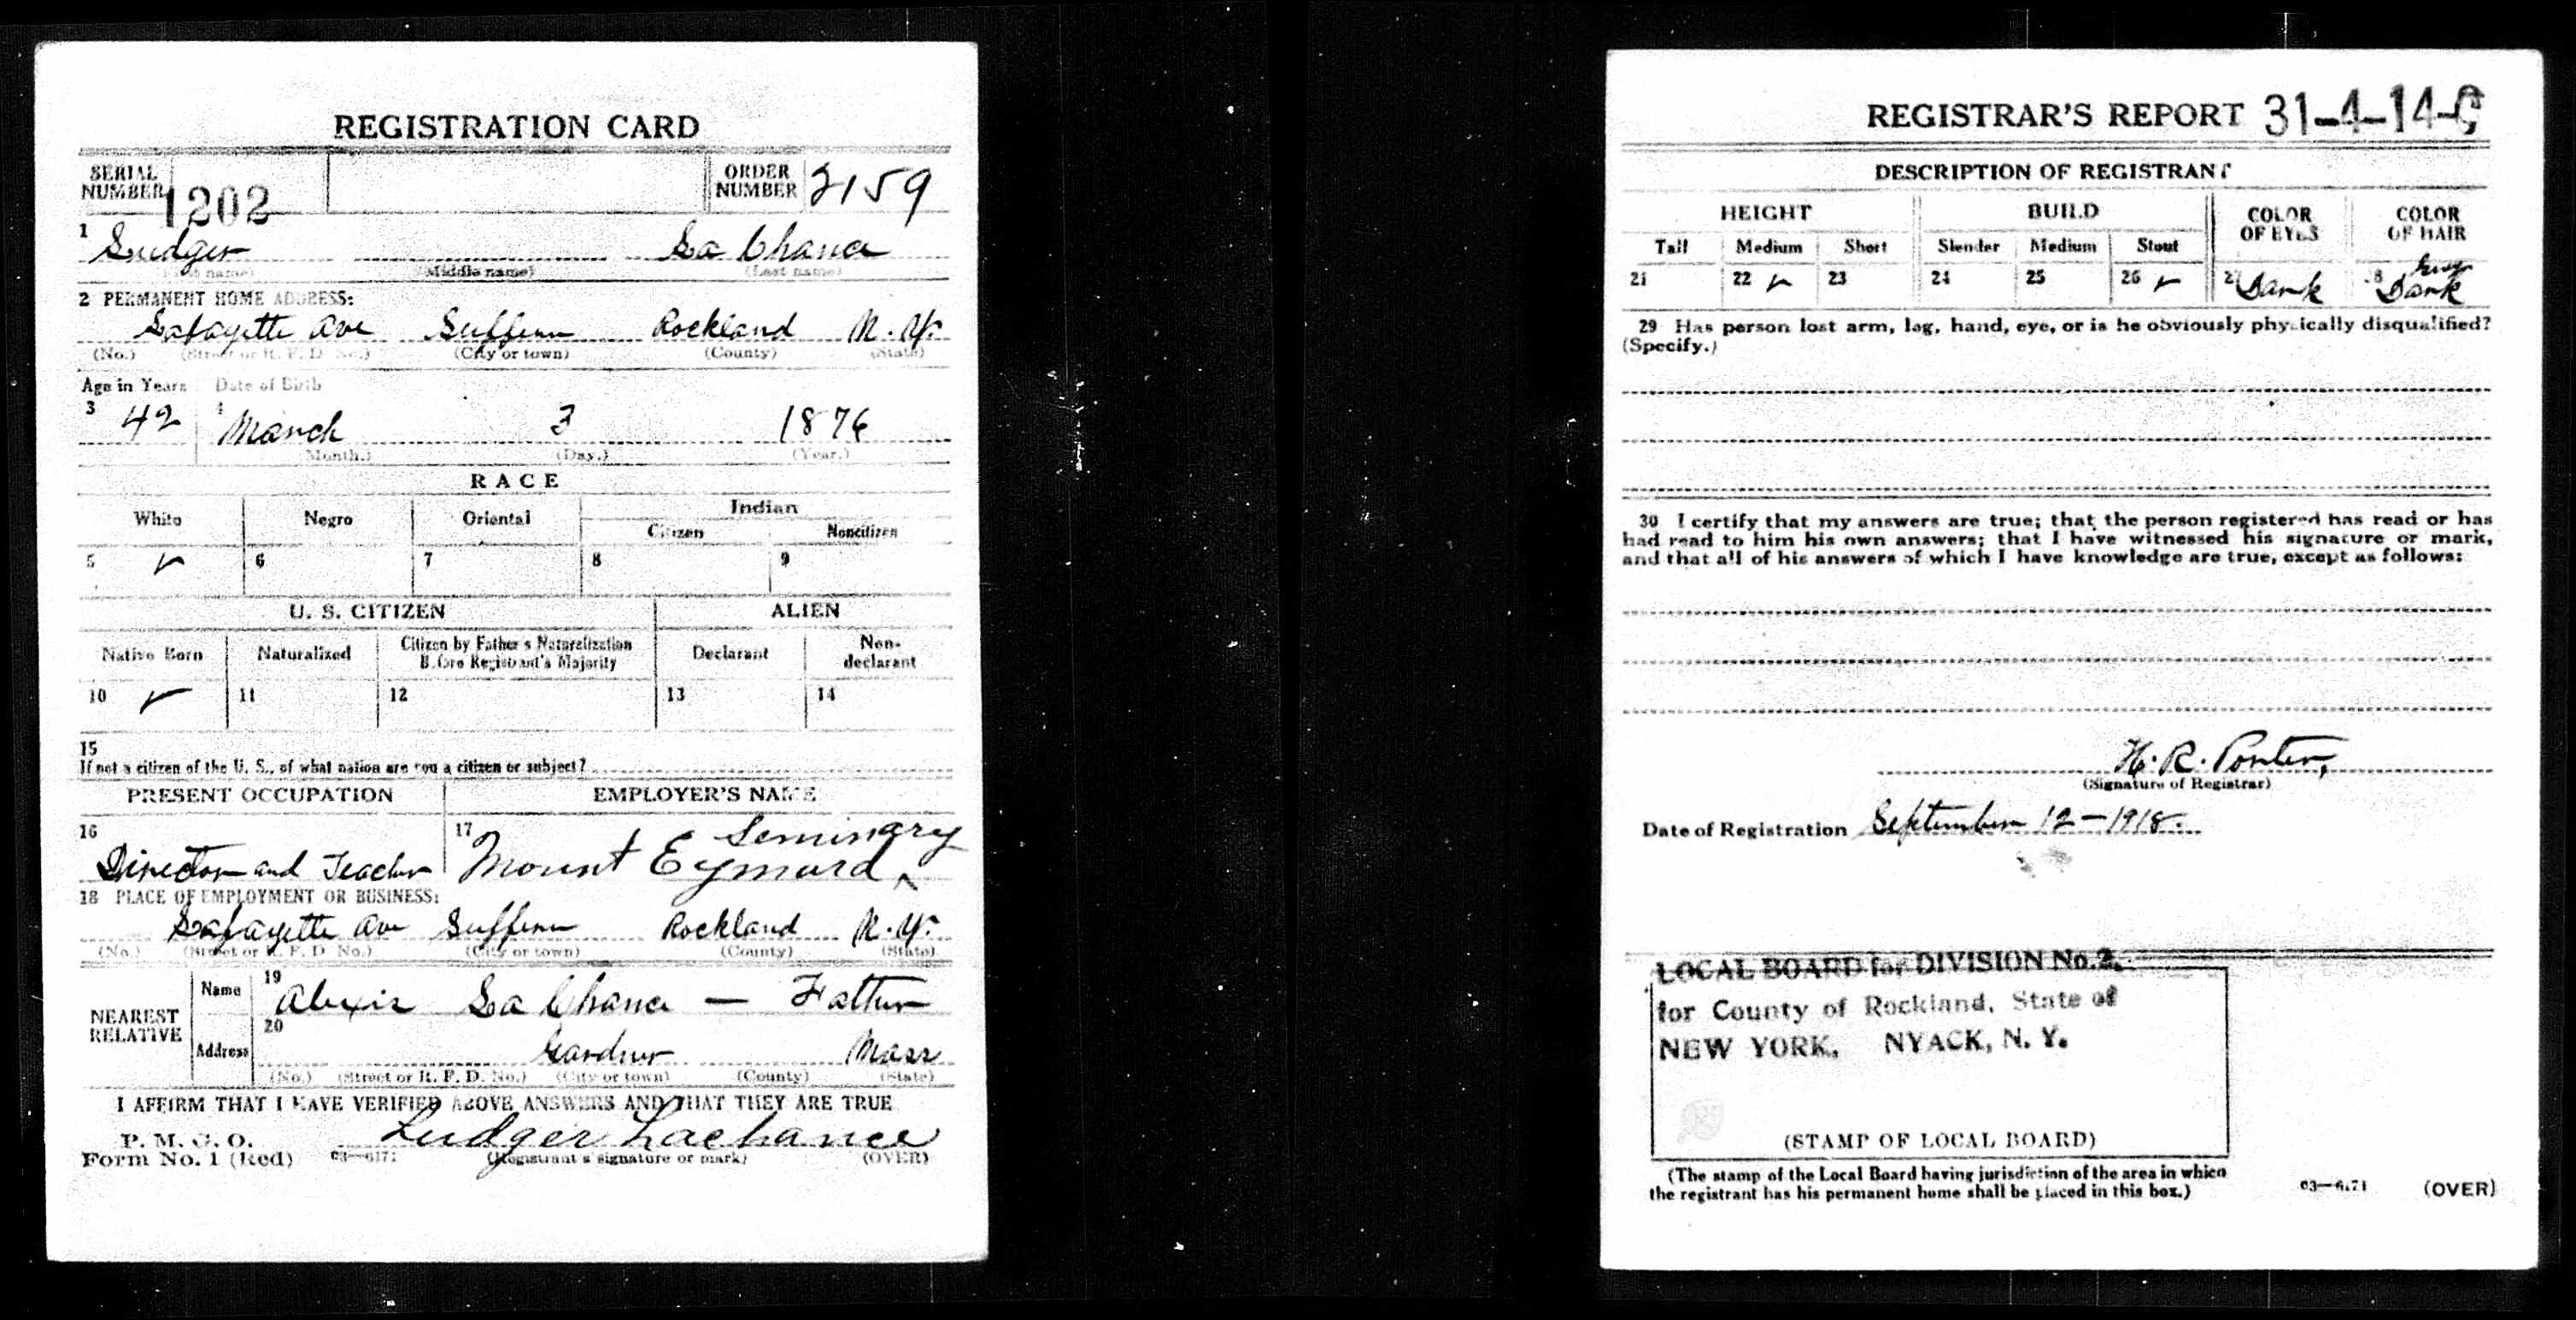 REGISTRATION CARD
SERIAL NUMBER 1202 ORDER NUMBER 2159
1 Ludger La Chance
(First name) (Middle name) (Last name)
2 PERMANENT HOME ADDRESS:
Lafayette Ave Suffern Rockland N.Y.
(No.) (Street or R. F. D. No.) (City or town) (County) (State)
Age in Years Date of Birth
3 42 4 March 3 1876
(Month.) (Day.) (Year.)
RACE
White Negro Oriental Indian
Citizen Noncitizen
5 ✓ 6 7 8 9
U. S. CITIZEN ALIEN
Native Born Naturalized Citizen by Father's Naturalization Before Registrant's Majority Declarant Non-declarant
10 ✓ 11 12 13 14
15
If not a citizen of the U. S., of what nation are you a citizen or subject?
PRESENT OCCUPATION EMPLOYER'S NAME
16 Director and Teacher 17 Mount Eymard Seminary
18 PLACE OF EMPLOYMENT OR BUSINESS:
Lafayette Ave Suffern Rockland N.Y.
(No.) (Street or R. F. D. No.) (City or town) (County) (State)
NEAREST RELATIVE
Name 19 Alexis La Chance — Father
Address 20 Gardner Mass
(No.) (Street or R. F. D. No.) (City or town) (County) (State)
I AFFIRM THAT I HAVE VERIFIED ABOVE ANSWERS AND THAT THEY ARE TRUE
P. M. G. O.
Form No. 1 (Red) Ludger Lachance
(Registrant's signature or mark) (OVER)
REGISTRAR'S REPORT 31-4-14-C
DESCRIPTION OF REGISTRANT
HEIGHT BUILD COLOR OF EYES COLOR OF HAIR
Tall Medium Short Slender Medium Stout
21 22 ✓ 23 24 25 26 ✓ 27 Dark 28 Grey Dark
29 Has person lost arm, leg, hand, eye, or is he obviously physically disqualified?
(Specify.)
30 I certify that my answers are true; that the person registered has read or has
had read to him his own answers; that I have witnessed his signature or mark,
and that all of his answers of which I have knowledge are true, except as follows:
H. R. Porter,
(Signature of Registrar)
Date of Registration September 12-1918.
LOCAL BOARD for DIVISION No. 2,
for County of Rockland, State of
NEW YORK, NYACK, N. Y.
(STAMP OF LOCAL BOARD)
(The stamp of the Local Board having jurisdiction of the area in which
the registrant has his permanent home shall be placed in this box.)
(OVER)